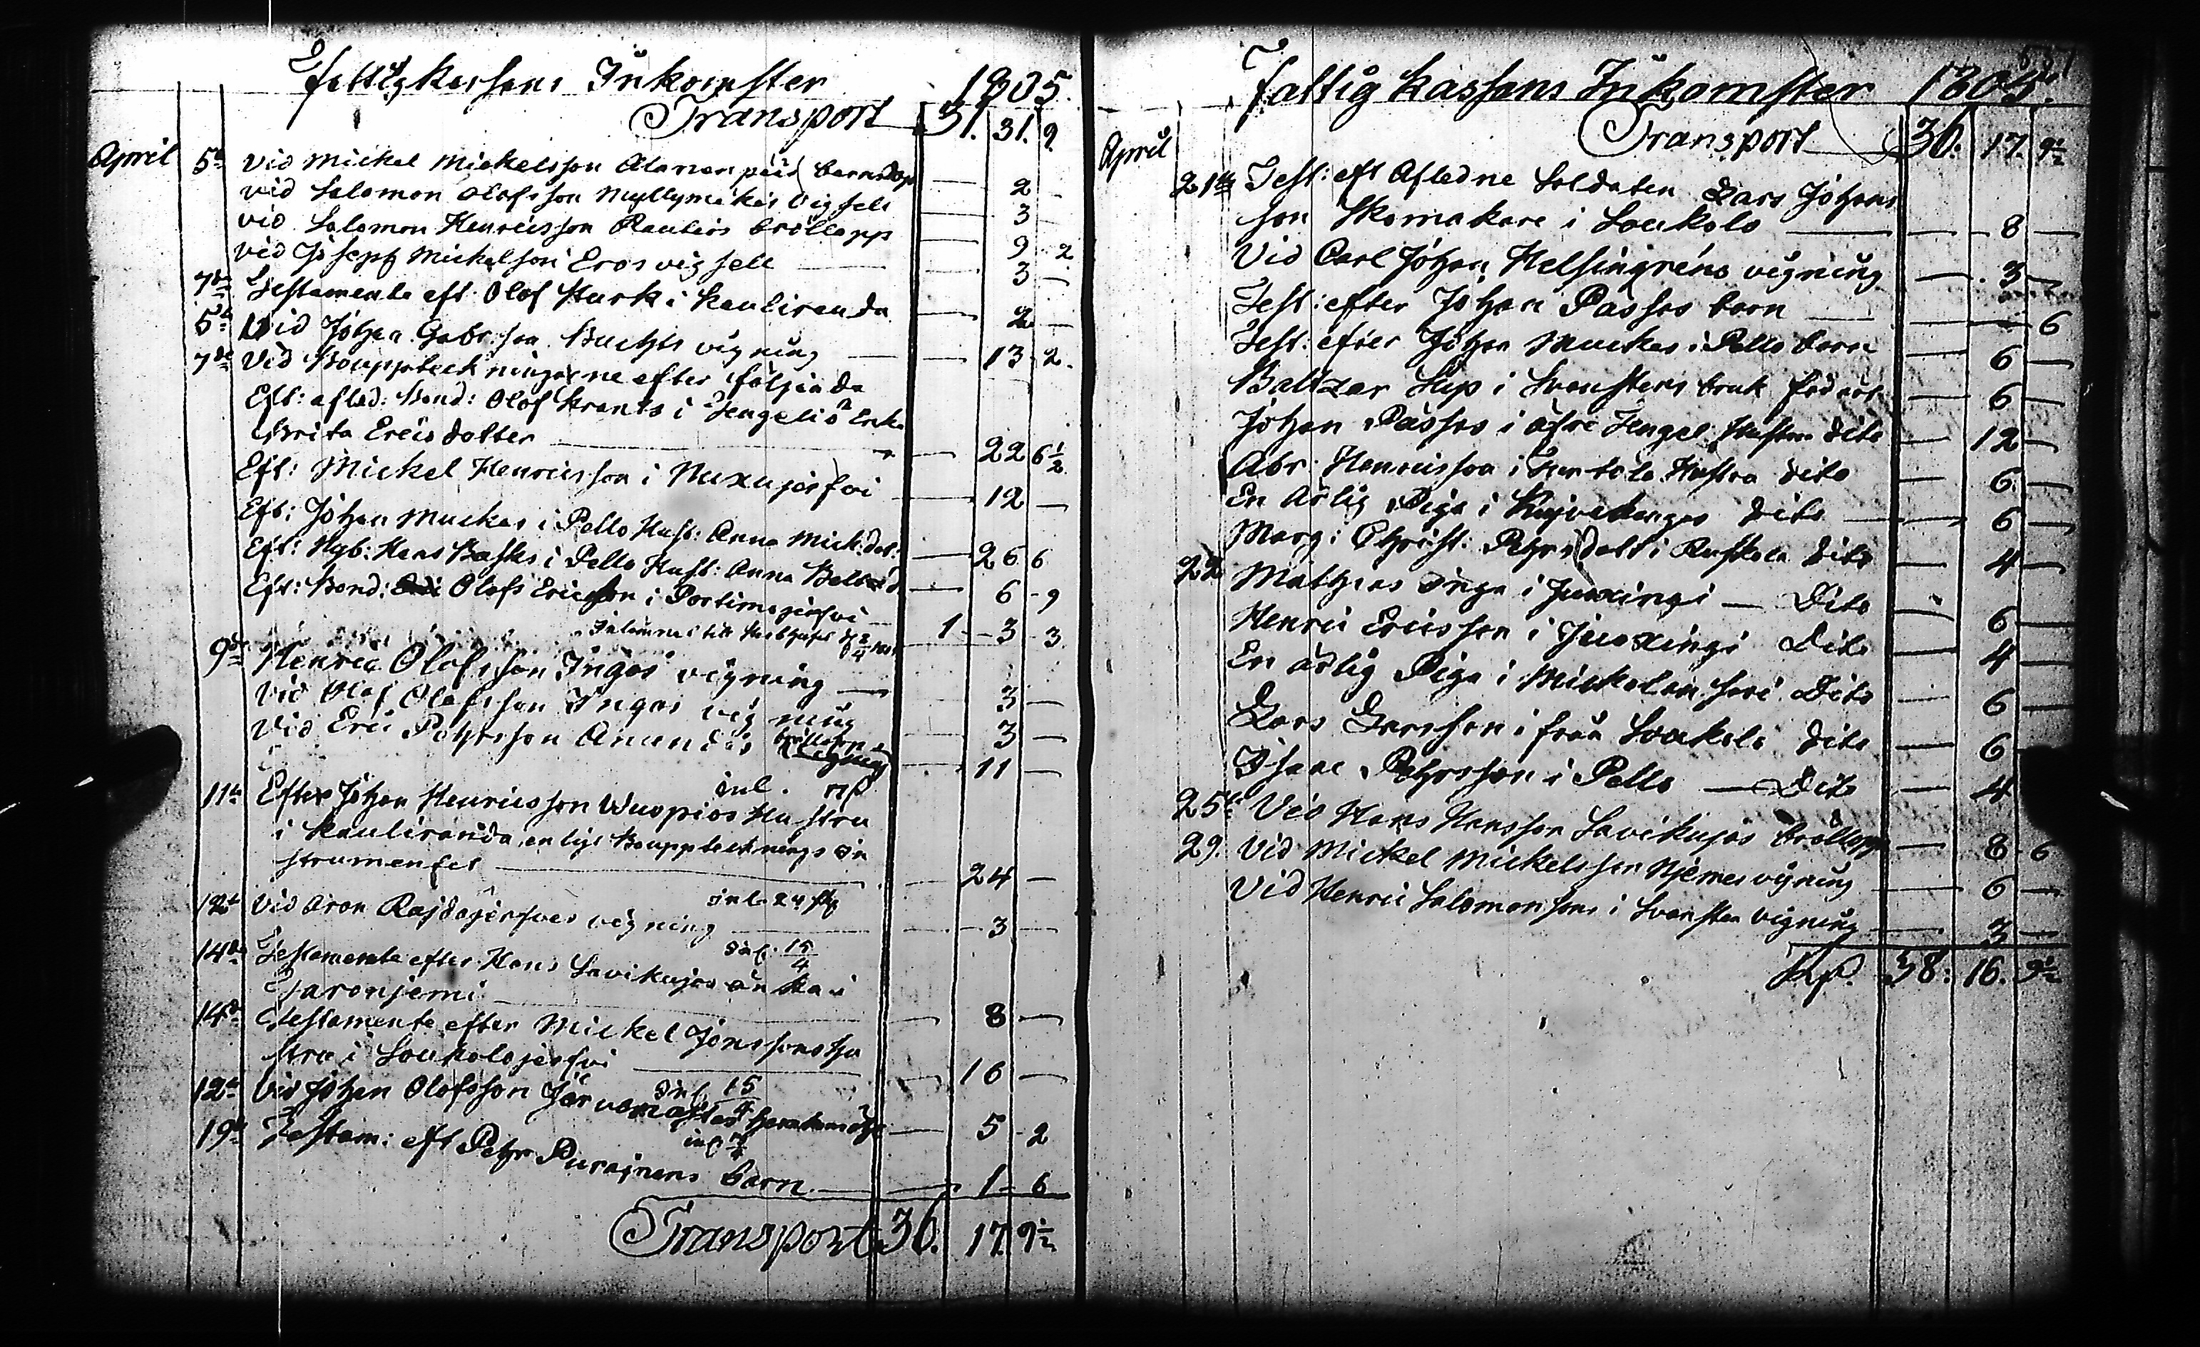 Fattigkassans Inkomster 1805.
Transport 31. 31. 9
April 5te vid Mickel Mickelsson Alanenpää barndop — 2 —
vid Salomon Olofsson Myllymäkis vigsell — 3 —
vid Salomon Henricsson Rautios bröllopp — 9 2
vid Joseph Mickelson Eros vigsell — 3 —
7de Testamente eft Olof Kurk i Kauliranda — 2 —
5te Vid Johan Gabr:son Buchts vigning — 13 2.
7de Vid Bouppteckningarne efter följande
Eft: afled: Bond: Olof Krants i Jengelis Enka
Brita Ericsdotter — 22 6½
Eft: Mickel Henricsson i Naxujerfvi — 12 —
Eft: Johan Muckas i Pello Hust: Anna Mick:dot: — 26 6
Eft: Nyb: Hans Basks i Pello Hust: Anna — 6 9
Eft: Bond: Olofs Ericsson i Portimojerfvi — 1 3 3
9de Henric Olofsson Ingos vigning — 3 —
Vid Olof Olofsson Ingos vigning — 3 —
Vid Eric Pehrsson Anundis bröllopp — 11 —
inl.
11te Efter Johan Henricsson Wuopios Hustru
i Kauliranda, enligt Bouppteknings in
strumentet — 24 —
inl. 24 sk
12te Vid Aron Rajdojerfves vigning — 3 —
inl. 15/4
14de Testamente efter Hans Lavikujas änka i
Jaronjemi — 8 —
14de Testamente efter Mickel Jonssons Hu
stru i Loukolojerfvi — 16 —
inl. 15/4
12te Vid Johan Olofsson — 5 2
19de Testam: eft Pehr Purainens barn — 1 6
Transport 36. 17. 9½
Fattig Kassans Inkomster 1805.
Transport 36. 17. 9½
April
21te Test: eft Afledne Soldaten Lars Johans
son Skomakare i Loukolo — 8 —
Vid Carl Johan Helsingréns vigning — 3 —
Test: efter Johan Passos barn — 6
Test: efter Johan Muckas i Pello barn — 6 —
Baltzar Kup i Svansteins bruk — 6 —
Johan Passos i öfre Jengel: Hustru dito — 12 —
Abr: Henricsson i Hustru dito — 6 —
En ärlig Piga i dito — 6 —
Marg: Christ: Pehrsdott i Ruskola dito — 4 —
22 Mathias Inga i Juoxingi — Dito — 6 —
Henric Ericsson i Juoxingi Dito — 4 —
En ärlig Piga i Dito — 6 —
Lars Larsson i från Loukolo dito — 6
Isaac Pehrsson i Pello — Dito — 4
25te Vid Hans Hansson Lavikujas bröllopp — 8 6
29. Vid Mickel Mickelsson Njemes vigning — 6 —
Vid Henric Salomonsons i Svanstein vigning — 3 —
38: 16. 9½